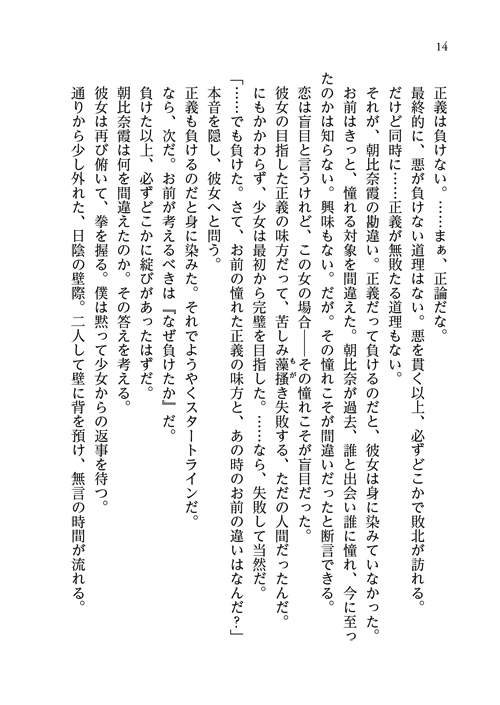 14
正義は負けない。……まぁ、正論だな。
最終的に、悪が負けない道理はない。悪を貫く以上、必ずどこかで敗北が訪れる。
だけど同時に……正義が無敵たる道理もない。
それが、朝比奈霞の勘違い。正義だって負けるのだと、彼女は身に染みていなかった。
お前はきっと、憧れる対象を間違えた。朝比奈が過去、誰と出会い誰に憧れ、今に至っ
たのかは知らない。興味もない。だが。その憧れこそが間違いだったと断言できる。
恋は盲目と言うけれど、この女の場合――その憧れこそが盲目だった。
彼女の目指した正義の味方だって、苦しみ藻掻き失敗する、ただの人間だったんだ。
にもかかわらず、少女は最初から完璧を目指した。……なら、失敗して当然だ。
「……でも負けた。さて、お前の憧れた正義の味方と、あの時のお前の違いはなんだ?」
本音を隠し、彼女へと問う。
正義も負けるのだと身に染みた。それでようやくスタートラインだ。
なら、次だ。お前が考えるべきは『なぜ負けたか』だ。
負けた以上、必ずどこかに綻びがあったはずだ。
朝比奈霞は何を間違えたのか。その答えを考える。
彼女は再び俯いて、拳を握る。僕は黙って少女からの返事を待つ。
通りから少し外れた、日陰の壁際。二人して壁に背を預け、無言の時間が流れる。